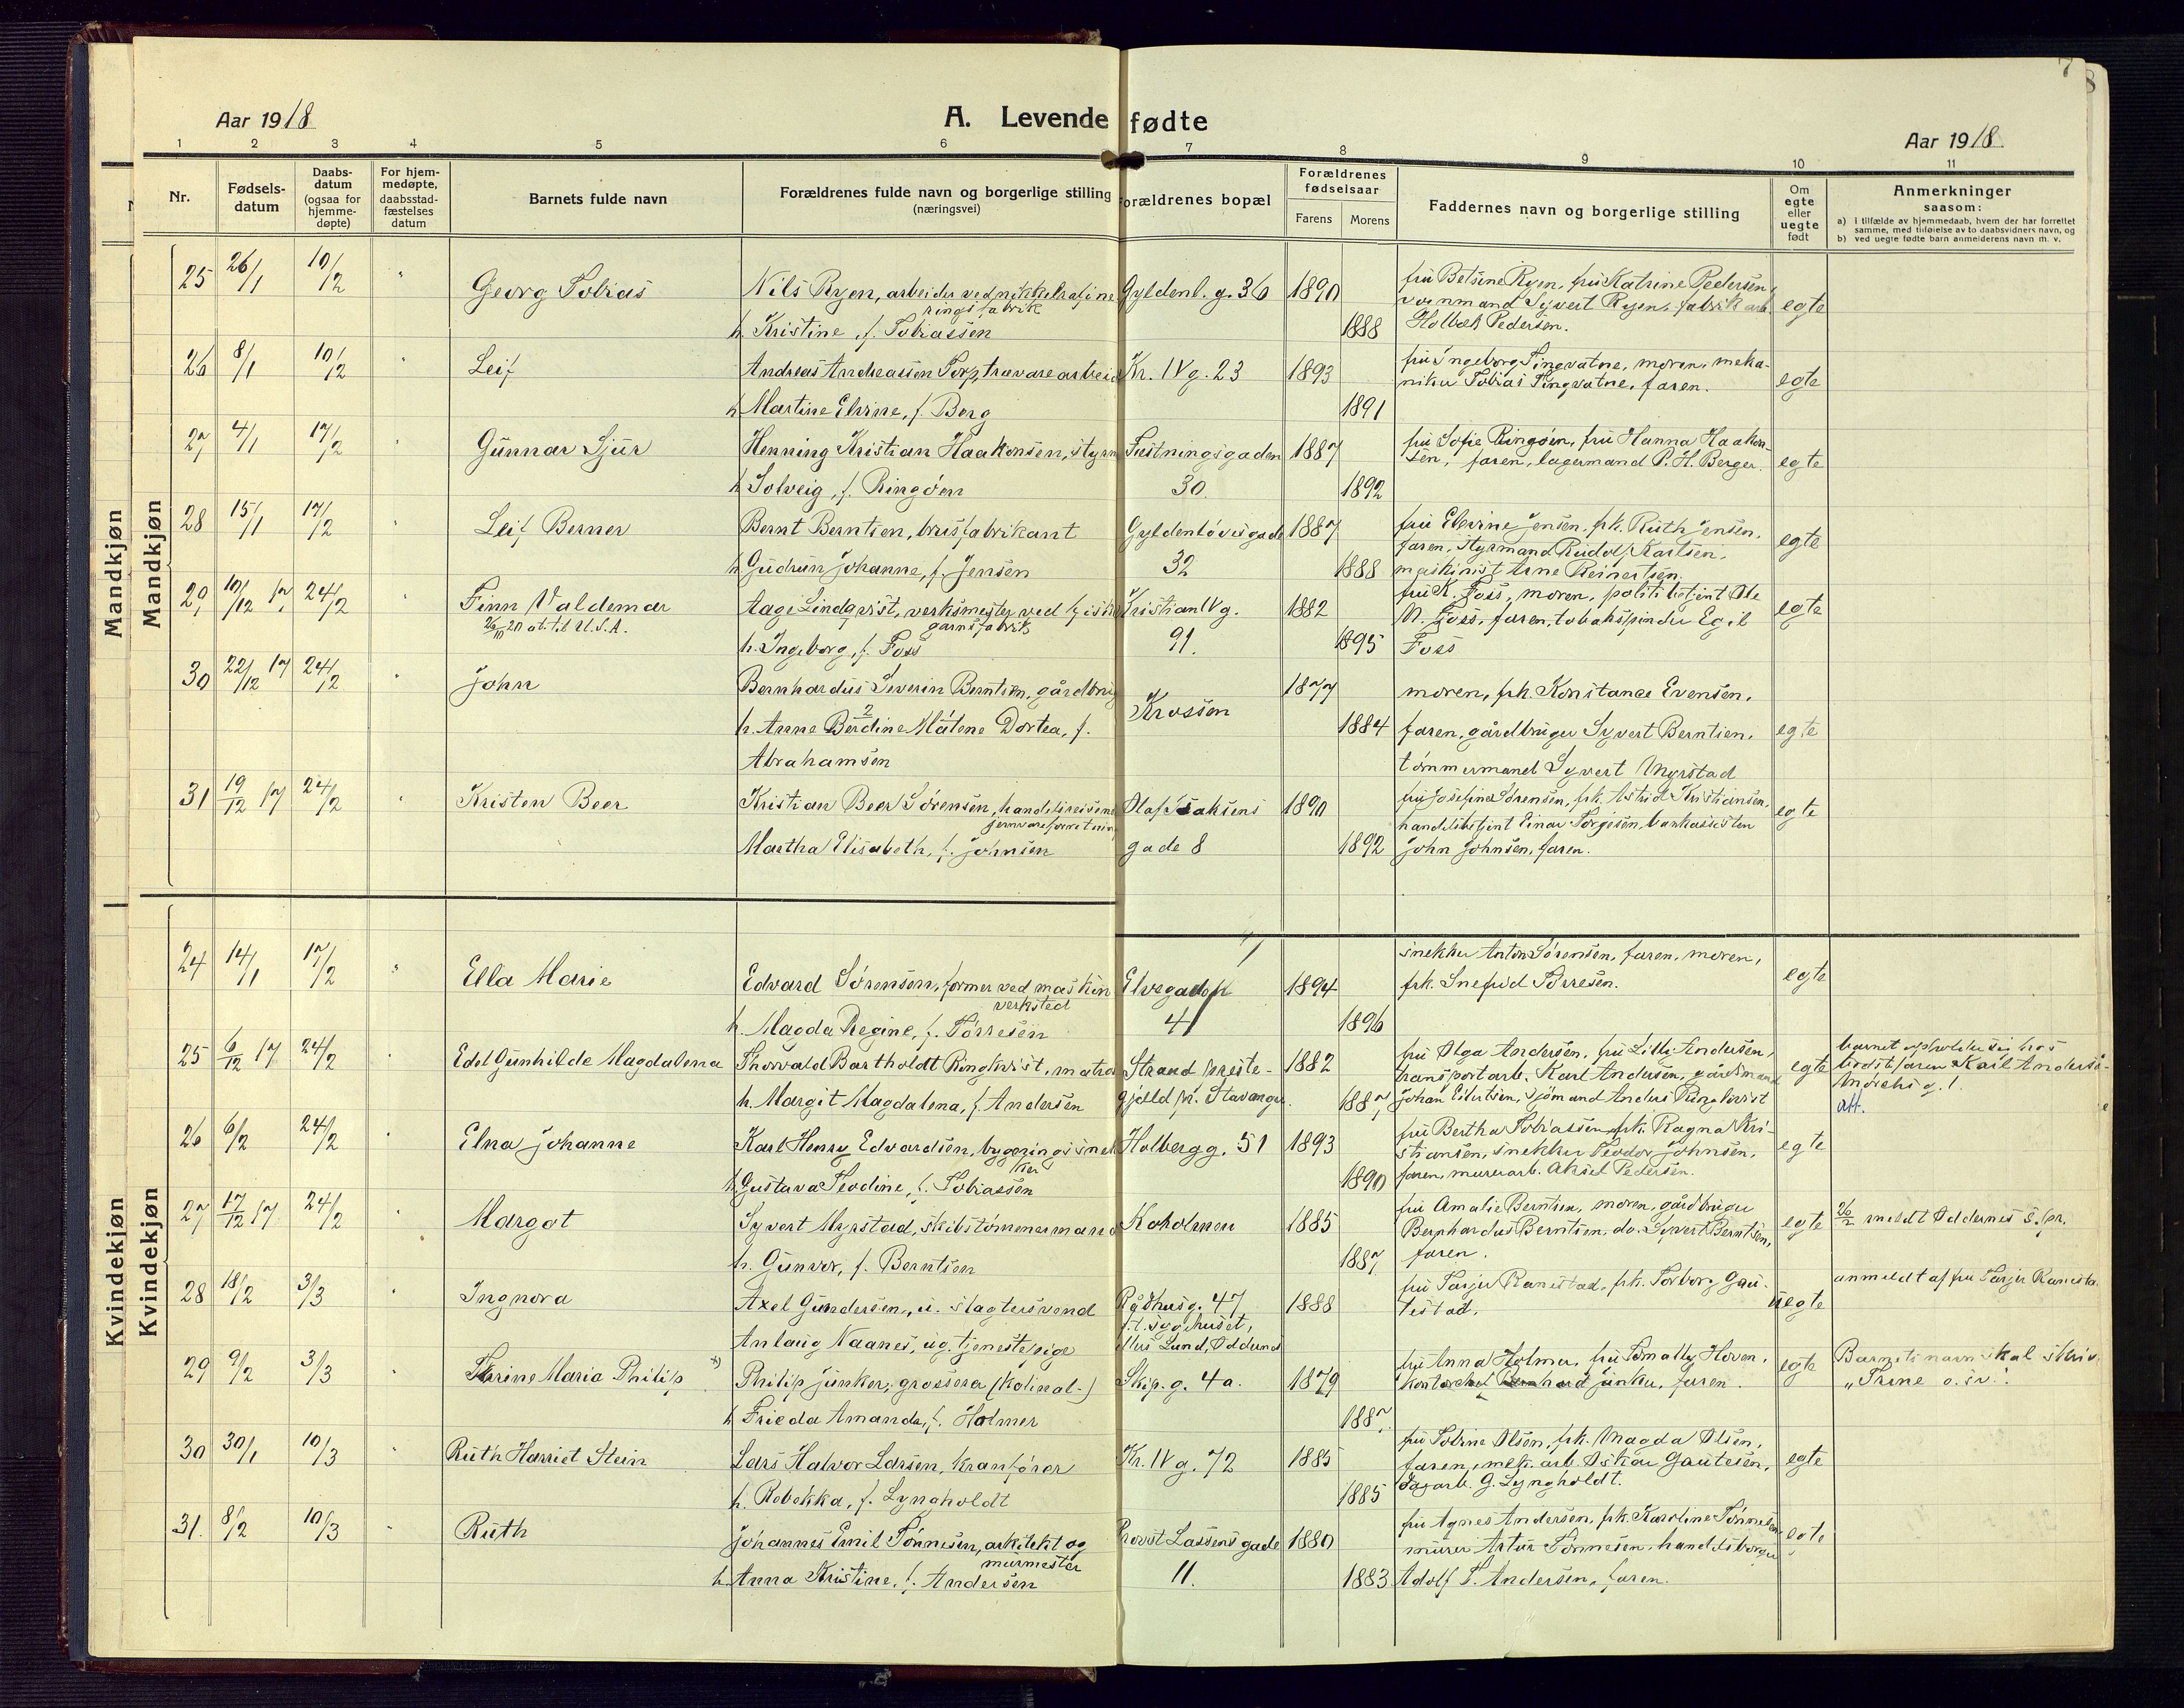 7
8
Aar 1918
A. Levende fødte
Aar 1918
1 2 3 4 5 6 7 8 9 10 11
Nr.
Fødsels-
datum
Daabs-
datum
(ogsaa for
hjemme-
døpte)
For hjem-
medøpte,
daabsstad-
fæstelses
datum
Barnets fulde navn
Forældrenes fulde navn og borgerlige stilling
(næringsvei)
orældrenes bopæl
Forældrenes
fødselsaar
Farens Morens
Faddernes navn og borgerlige stilling
Om
egte
eller
uegte
født
Anmerkninger
saasom:
a) i tilfælde av hjemmedaab, hvem der har forrettet
samme, med tilføielse av to daabsvidners navn, og
b) ved uegte fødte barn anmelderens navn m. v.
Mandkjøn
Mandkjøn
25 26/1 10/2 " Georg Tobias Nils Ryen, arbeider ved nikkelrafine Gyldenl. g. 36 1890 fru Betsine Ryen, fru Katrine Pedersen,
ringsfabrik vognmand Syvert Ryen, fabrikarb. egte
h. Kristine, f. Tobiassen 1888 Holbæk Pedersen.
26 8/1 10/2 " Leif Andreas Andreassen Torp, trævarearbeid Kr. IV g. 23 1893 fru Ingeborg Tingvatne, moren, meka-
niker Tobias Tingvatne, faren. egte
h. Martine Elvine, f. Berg 1891
27 4/1 17/2 " Gunnar Sjur Henning Kristian Haakonsen, styrm Festningsgaden 1887 fru Sofie Ringøen, fru Hanna Haakon-
sen, faren, lagermand P. H. Berger. egte
h. Solveig, f. Ringøen 30. 1892
28 15/1 17/2 " Leif Berner Bernt Berntsen, brusfabrikant Gyldenløvesgade 1887 fru Elevine Jensen, frk. Ruth Jensen,
faren, styrmand Rudolf Karlsen, egte
h. Gudrun Johanne, f. Jensen 32 1888 maskinist Arne Reinertsen.
29 10/12 17 24/2 Finn Valdemar Aage Lindqvist, verksmester ved fiske Kristian IV g. 1882 fru K. Foss, moren, politibetjent Ole
26/10 20 at. til U.S.A. garnsfabrik N. Foss, faren, tobakspinder Egil egte
h. Ingeborg, f. Foss 91. 1895 Foss
30 22/12 17 24/2 " John Bernhardus Severin Berntsen, gårdbrug Krossen 1877 moren, frk. Konstance Evensen,
h. Anne Berdine Målene Dortea, f. 1884 faren, gårdbruger Syvert Berntsen, egte
Abrahamsen tømmermand Syvert Myrstad
31 19/12 17 24/2 " Kristen Beer Kristian Beer Sørensen, handelsreisende Olaf Isaksens 1890 fru Josefine Sørensen, frk. Astrid Kristiansen,
jernvareforretning handelsbetjent Einar Torgisen, bankassisten egte
Martha Elisabeth, f. Johnsen gade 8 1892 John Johnsen, faren.
Kvindekjøn
Kvindekjøn
24 14/1 17/2 " Ella Marie Edvard Sørensen, former ved maskin Elvegaden 1894 snekker Anton Sørensen, faren, moren,
verksted frk. Snefrid Tørresen. egte
h. Magda Regine, f. Tørresen 41 1896
25 6/12 17 24/2 " Edel Gunhilde Magdalena Thorvald Bartholdt Ringkvist, matro Strand preste- 1882 fru Olga Andersen, fru Lilly Andersen, barnet opholder sig hos
transportarb. Karl Andersen, gårdmand egte Karl Anders
h. Margit Magdalena, f. Andersen gjæld pr. Stavanger. 1887 Johan Eilertsen, sjømand Anders Ringkvist
26 6/2 24/2 Elna Johanne Karl Henry Edvardsen, bygningssnek Holbergg. 51 1893 fru Bertha Tobiassen, frk. Ragna Kri-
ker stiansen, snekker Teodor Johnsen, egte
h. Gustava Teodine, f. Tobiassen 1890 faren, murerarb. Aksel Pedersen.
27 17/12 17 24/2 " Margot Syvert Myrstad, skibstømmermand Koholmen 1885 fru Amalie Berntsen, moren, gårdbruger
Bernhardus Berntsen, do. Syvert Berntsen, egte 26/2 meldt Oddernes s.pr.
h. Gunvor, f. Berntsen 1887. faren.
28 18/2 3/3 " Ingnora Axel Gundersen, u. slagtersvend Rådhusg. 47 1888 fru Tarjer Ranestad, frk. Torborg Gau- anmeldt af fru Tarjer Ranesta.
testad. uegte
Anlaug Naanes, ug. tjenestepige Lund, Oddernes
29 9/2 3/3 " Thrine Maria Philip Philip Junker, grossera (kolonial-) Skip. g. 4a. 1879 fru Anna Holmer, fru Tomally Hoven, egte Barnets navn skal skriv.
Junker, faren. „Trine o.s.v."
h. Frieda Amanda, f. Holmer 1887.
30 30/1 10/3 " Ruth Harriet Stein Lars Halvor Larsen, kranfører Kr. IV g. 72 1885 fru Tobine Olsen, frk. Magda Olsen,
faren, mek. arb. Oskar Gautesen, egte
h. Rebekka, f. Lyngholdt 1885 Dagarb. G. Lyngholdt.
31. 8/2 10/3 " Ruth Johannes Emil Tønnesen, arkitekt og Provst Lassens gade 1880 fru Agnes Andersen, frk. Karoline Tønnesen
murmester murer Artur Tønnesen, handelsborger egte
h. Anna Kristine, f. Andersen 11. 1883 Adolf T. Andersen, faren.